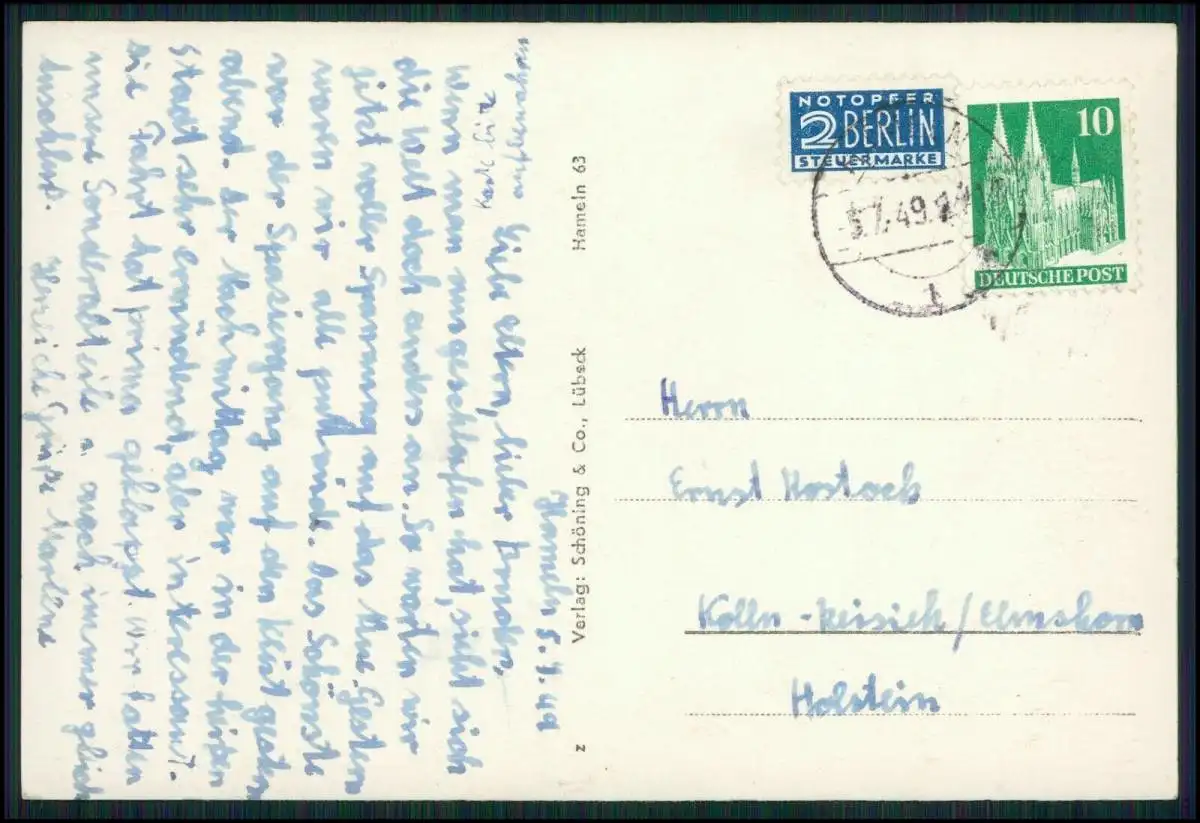 Hameln 5.7.49
Liebe Eltern, lieber
Karte bitte
aufbewahren
Wenn man ausgeschlafen hat, sieht sich
die Welt doch anders an. So warten wir
jetzt voller Spannung auf das Neue. Gestern
waren wir alle
Das Schönste
war der Spaziergang auf dem Klüt gestern
abend. Der Nachmittag war in der heißen
Stadt sehr ermüdend, aber interessant.
Die Fahrt hat prima geklappt. Wir hatten
unsere Sonderabteile u. auch immer gleich
Anschluß. Herzliche Grüße
Verlag: Schöning & Co., Lübeck
Hameln 63
z
NOTOPFER
2 BERLIN
STEUERMARKE
10
DEUTSCHE POST
5.7.49
Herrn
Ernst Rostock
Kölln-Reisiek/Elmshorn
Holstein